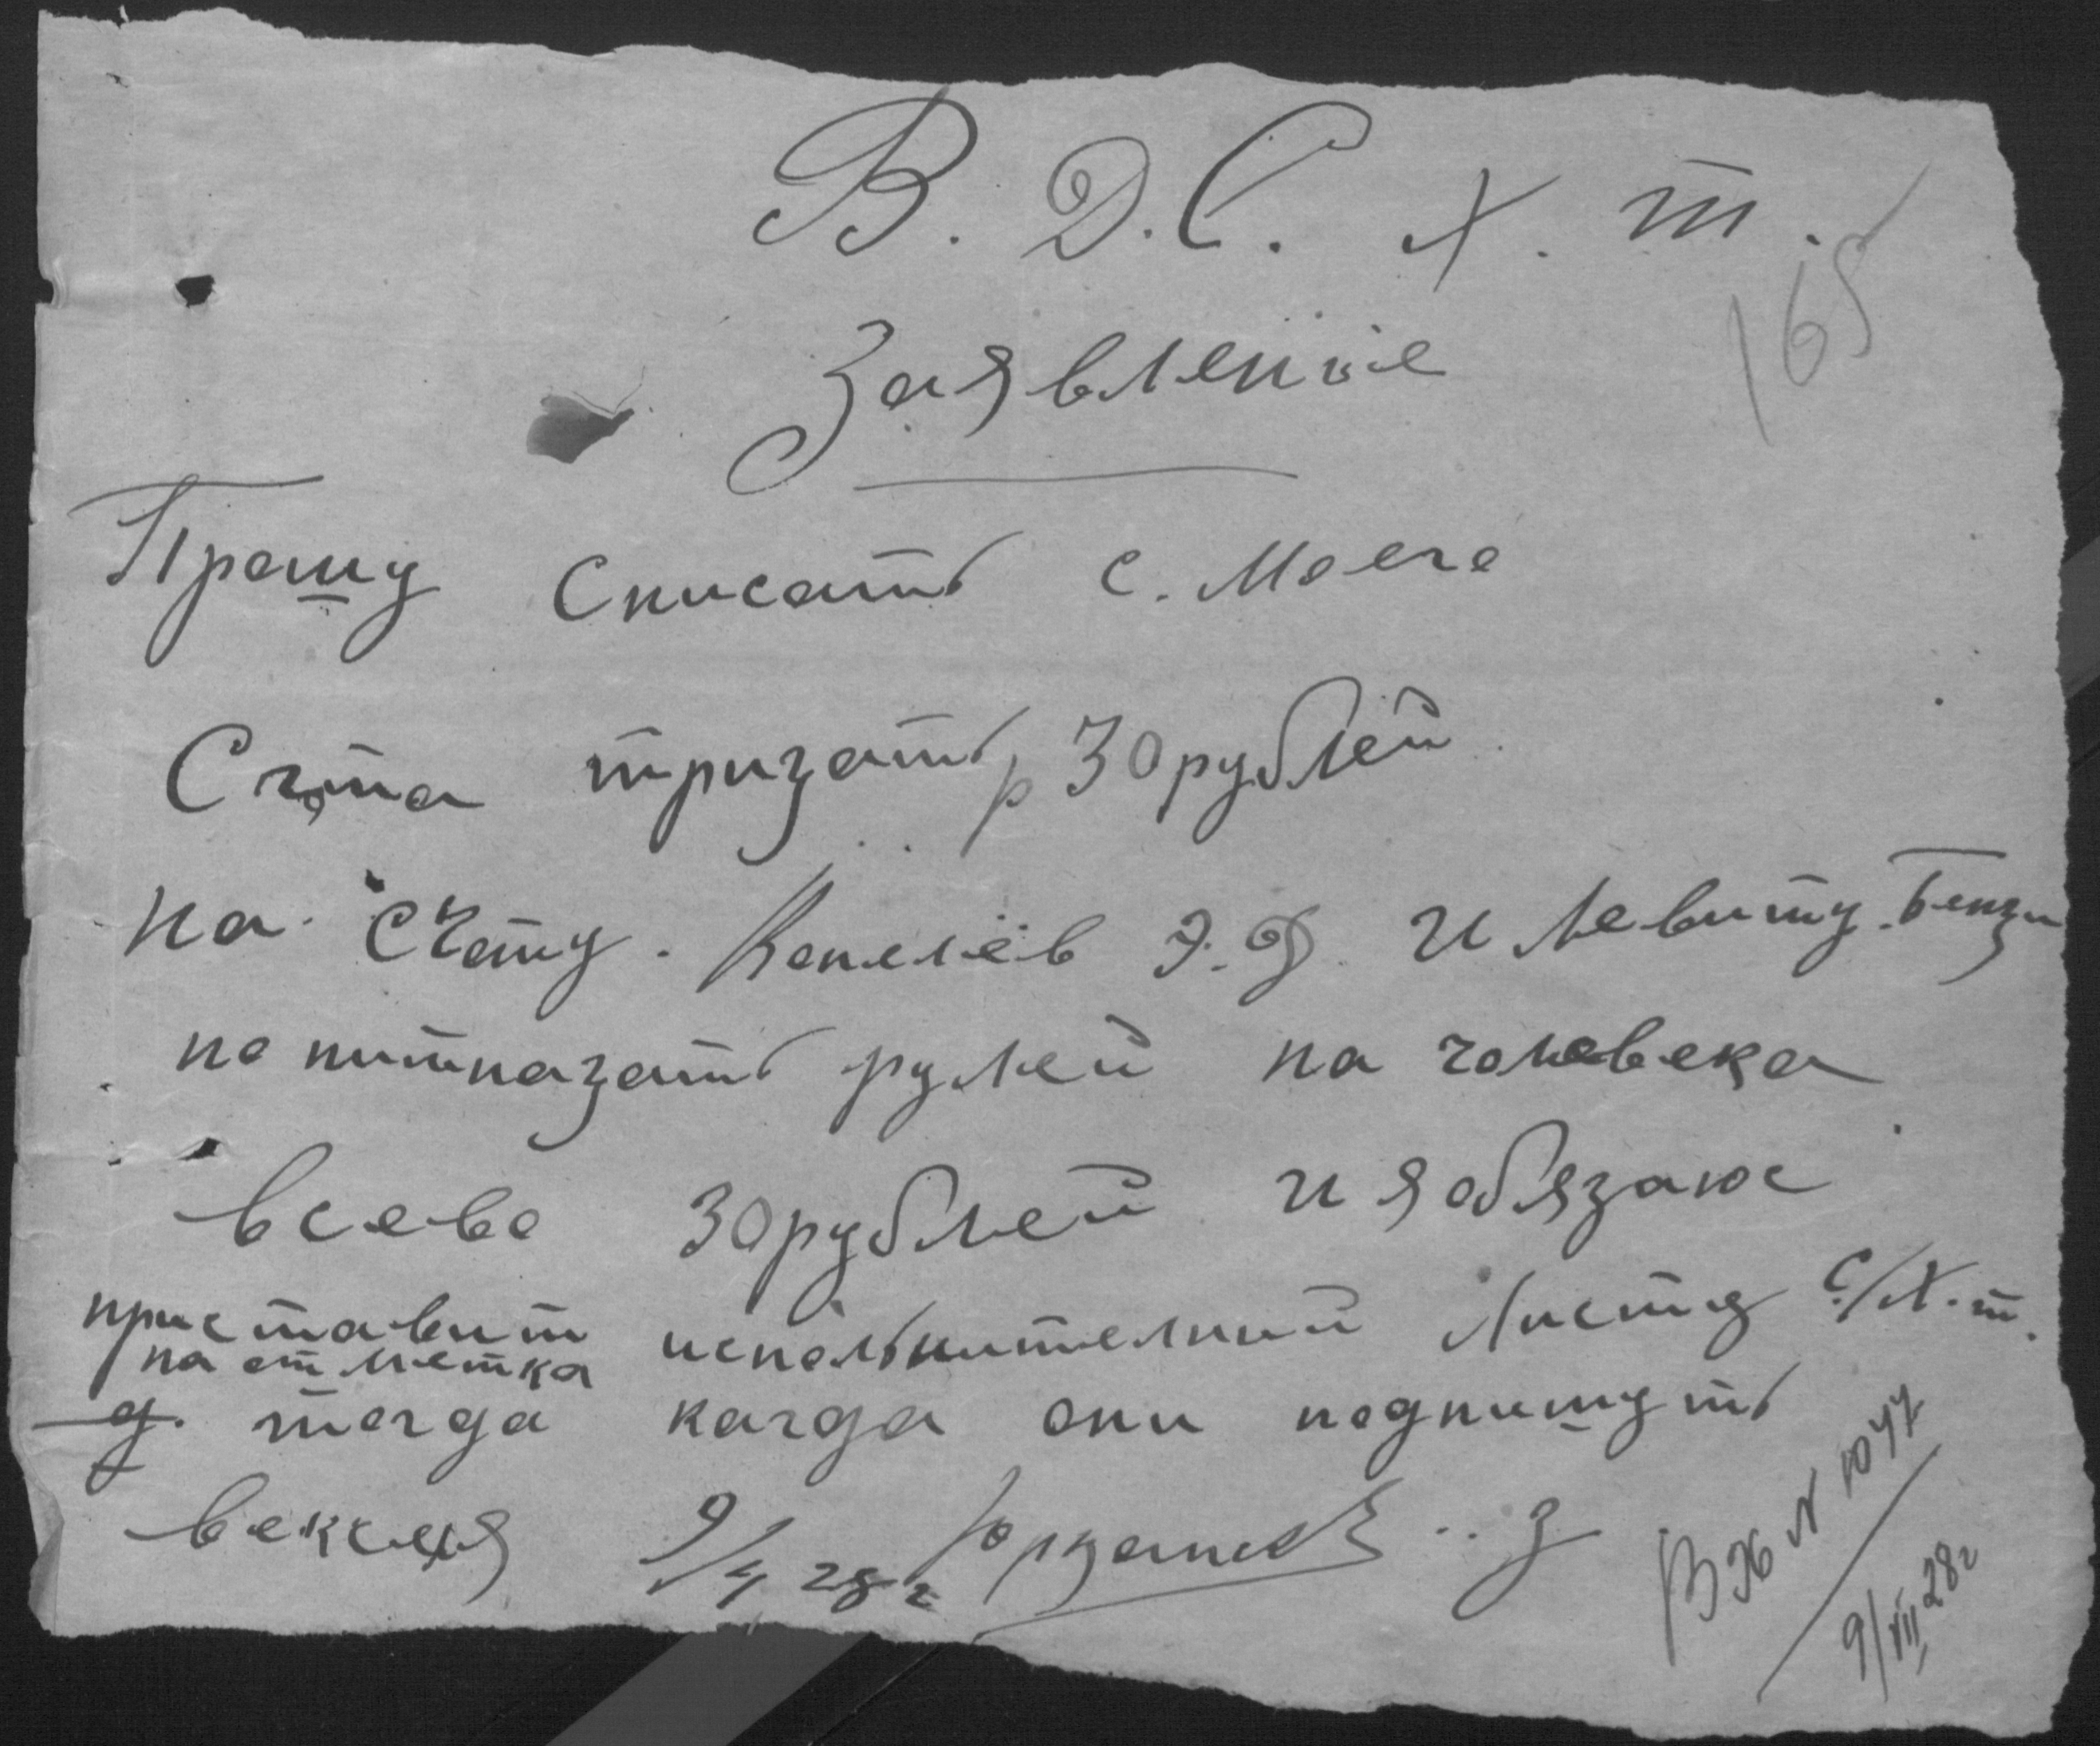 В. Д. С. х. т.
165
Заявление
Прошу Списать с. Моего
Счота тризать р 30 рублей
на. Счету. Копелёв Э. Ф. и Левиту. Бенzи
по питназать рулей на человека
всево 30 рублей и я обязаюс
приставит исполнителний Листу С/Х. т.
на отметка
д. тогда кагда они подпишуть
векселя 9/4 28 г
Вх № 1047
9/VII 28 г